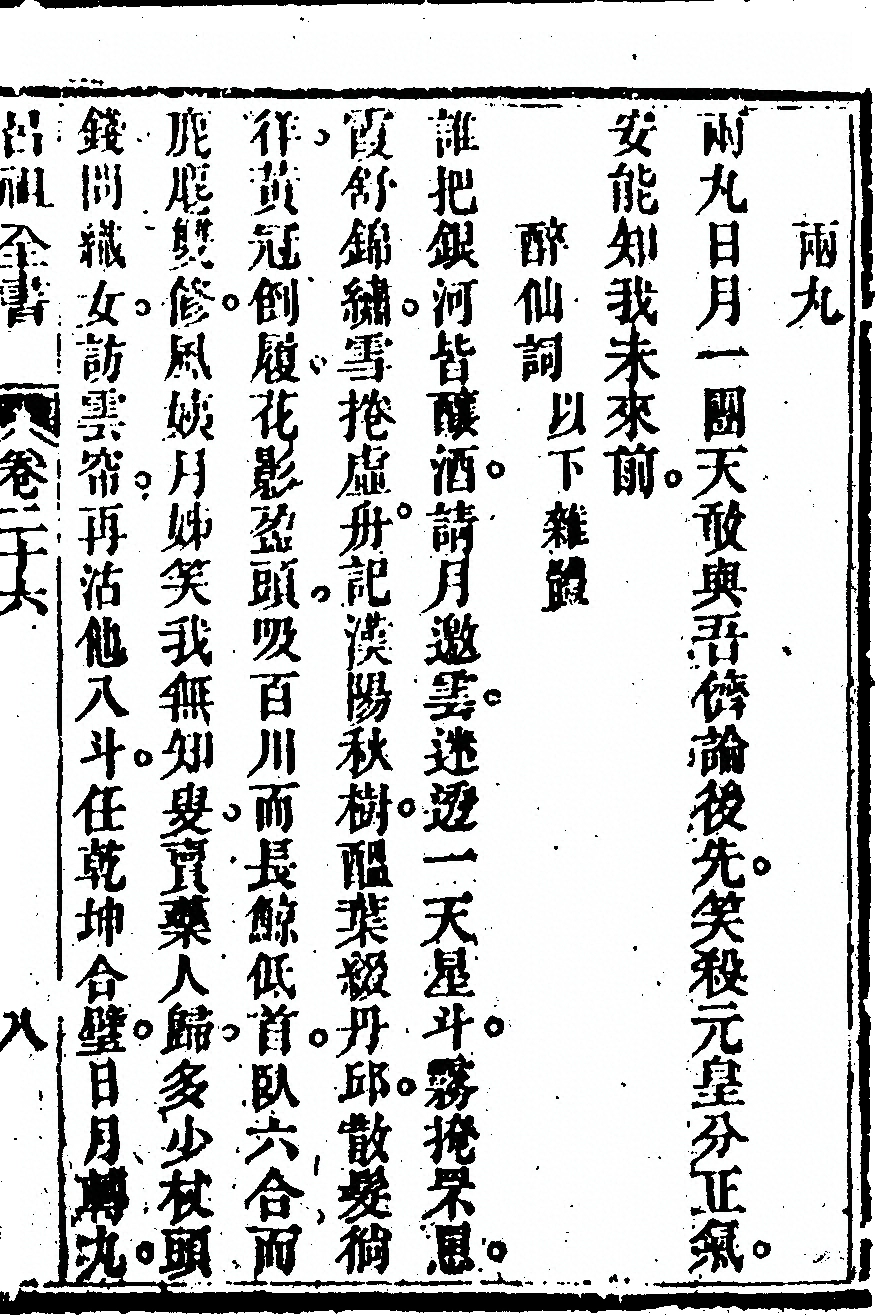 兩丸
兩丸日月一團天敢與吾儕論後先。笑殺元皇分正氣。
安能知我未來前。
醉仙詞 以下雜體
誰把銀河皆釀酒。請月邀雲。迷遊一天星斗。霧掩罘罳。
霞舒錦繡。雪捲虛舟。記漢陽秋樹。醞葉綴丹邱。散髮徜
徉。黃冠倒履。花影盈頭。吸百川而長鯨低首。臥六合而
鹿麀雙修。風姨月姊笑我無知叟。賣藥人歸。多少杖頭
錢問織女。訪雲帘。再沽他八斗。任乾坤合璧。日月轉丸。
呂祖全書 卷二十六 八